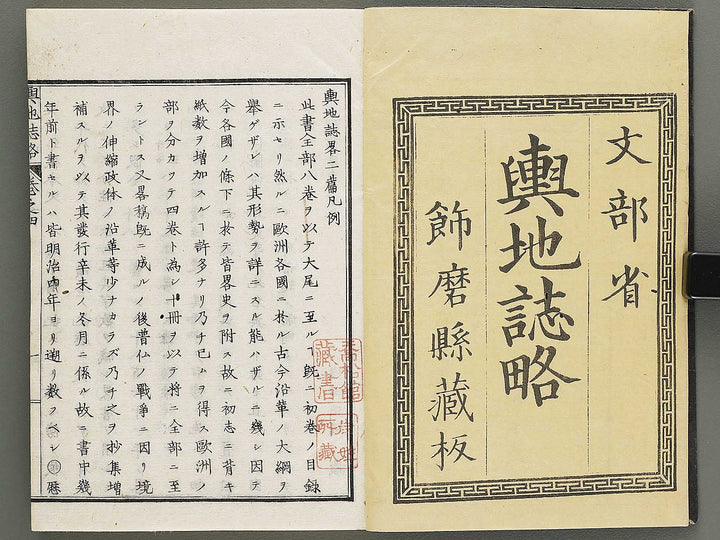 文部省
輿地誌略
飾磨縣藏板
輿地誌畧二篇凡例
此書全部八巻ヲ以テ大尾ニ至ルヿ既ニ初巻ノ目録
ニ示セリ然ルニ欧洲各國ニ於ル古今沿革ノ大綱ヲ
擧ゲザレハ其形勢ヲ詳ニスル能ハザルニ幾シ因テ
今各國ノ條下ニ於テ皆畧史ヲ附ス故ニ初志ニ背キ
紙数ヲ増加スルヿ許多ナリ乃チ已ムヲ得ス欧洲ノ
部ヲ分カツテ四巻ト為シ十冊ヲ以テ将ニ全部ニ至
ラントス又畧稿既ニ成ルノ後普仏ノ戦争ニ因リ境
界ノ伸縮政体ノ沿革等少ナカラズ乃チ之ヲ抄集増
補スルヲ以テ其發行辛未ノ冬月ニ係ル故ニ書中幾
年前ト書セルハ皆明治四年ヨリ遡リ数フベシ 暦
輿地誌略 巻之四
藏書